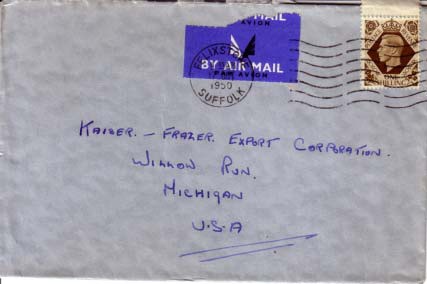 AIR MAIL
PAR AVION
BY AIR MAIL
PAR AVION
FELIXSTOWE
1950
SUFFOLK
ONE
SHILLING
KAISER. - FRAZER. EXPORT CORPORATION.
WILLOW RUN.
MICHIGAN
U.S.A